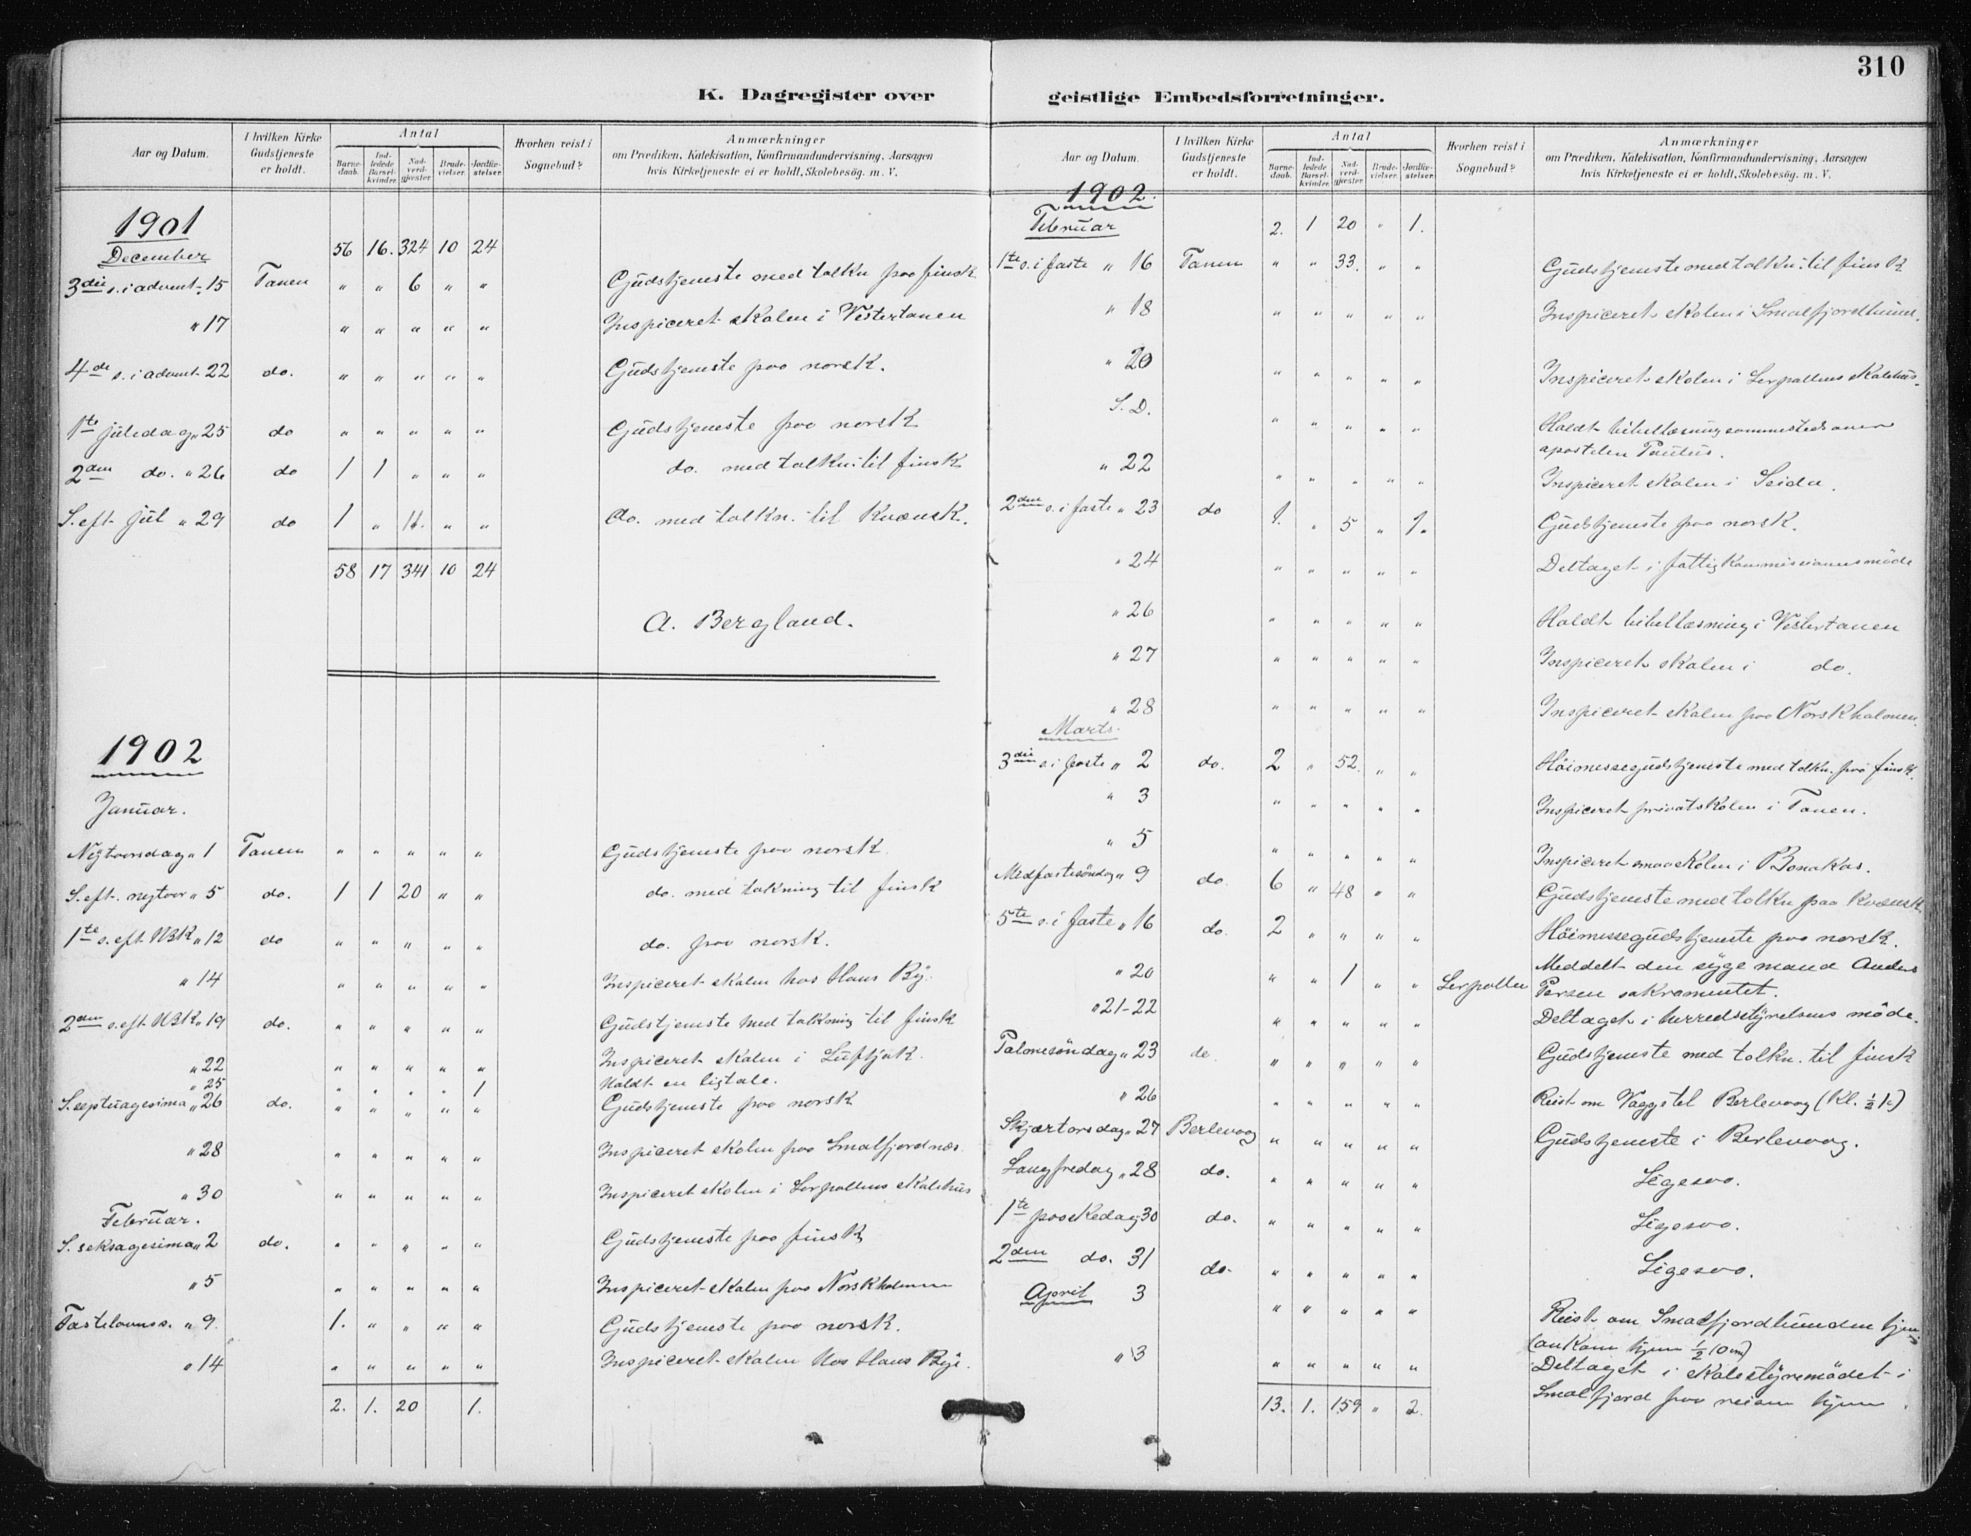 310
K. Dagregister over
Aar og Datum.
I hvilken Kirke Gudstjeneste er holdt.
Antal
Barne-daab.
Ind-ledede Barsel-kvinder.
Nad-verd-gjæster.
Brude-vielser.
Jordfæ-stelser.
Hvorhen reist i Sognebud?
Anmærkninger
om Prædiken, Katekisation, Konfirmandundervisning, Aarsagen
hvis Kirketjeneste ei er holdt, Skolebesøg. m. V.
1901
December 56 16. 324 10 24
3die s. i advent " 15 Tanen " " 6 " " Gudstjeneste med tolkn paa finsk
" 17 " " " " " Inspiceret skolen i Vestertanen
4de s. i advent 22 do. " " " " " Gudstjeneste paa norsk.
1te juledag " 25 do " " " " " Gudstjeneste paa norsk
2den do. " 26 do 1 1 " " " do. med tolkn: til finsk
S. eft. jul " 29 do 1 " 11. " " do. med tolkn. til kvænsk.
58 17 341 10 24
A. Bergland.
1902
Januar.
Nytaarsdag " 1 Tanen " " " " " Gudstjeneste paa norsk
S. eft. nytaar " 5 do. 1 1 20 " " do. med tolkning til finsk
1te s. eft. H3K " 12 do " " " " " do. paa norsk.
" 14 " " " " " Inspiceret skolen hos Hans By.
2den s. eft H3K " 19 do. " " " " " Gudstjeneste med tolkning til finsk
" 22 " " " " " Inspiceret skolen i Luftjok.
" 25 " " " " 1 Holdt en ligtale.
S. septuagesima " 26 do. " " " " " Gudstjeneste paa norsk
" 28 " " " " " Inspiceret skolen paa Smalfjordnæs
" 30 " " " " " Inspiceret skolen i Lerpollens skolehus
Februar.
S. seksagesima " 2 do. " " " " " Gudstjeneste paa finsk
" 5 " " " " " Inspiceret skolen paa Norskholmen
Fastelavns s. " 9. 1. " " " " Gudstjeneste paa norsk.
" 14 " " " " " Inspiceret skolen hos Hans Bye.
2. 1. 20 1.
geistlige Embedsforretninger.
Aar og Datum.
I hvilken Kirke Gudstjeneste er holdt.
Antal
Barne-daab.
Ind-ledede Barsel-kvinder.
Nad-verd-gjæster.
Brude-vielser.
Jordfæ-stelser.
Hvorhen reist i Sognebud?
Anmærkninger
om Prædiken, Katekisation, Konfirmandundervisning, Aarsagen
hvis Kirketjeneste ei er holdt, Skolebesøg. m. V.
1902.
Februar 2. 1 20 " 1.
1te s. i faste " 16 Tanen " " 33. " " Gudstjeneste med tolkn. til finsk
" 18 " " " " " Inspiceret skolen i Smalfjordbunn.
" 20 " " " " " Inspiceret skolen i Lerpollens skolehus.
S. D. " " " " " Holdt bibellæsning sammesteds over
apostelen Paulus.
" 22 " " " " " Inspiceret skolen i Seida.
2den s. i faste " 23 do 1. " 5 " 1. Gudstjeneste paa norsk.
" 24 " " " " " Deltaget i fattigkommissionsmøde
" 26 " " " " " Holdt bibellæsning i Vestertanen
" 27 " " " " " Inspiceret skolen i do.
" 28 " " " " " Inspiceret skolen paa Norskholmen
Marts.
3die s. i faste " 2 do. 2 " 52. " " Høimessegudstjeneste med tolkn. paa finsk.
" 3 " " " " " Inspiceret privatskolen i Tanen.
" 5 " " " " " Inspiceret smaaskolen i Bonakas.
Medfastesøndag " 9 do. 6 " 48 " " Gudstjeneste med tolkn paa kvænsk
5te s. i faste " 16 do. 2 " " " " Høimessegudstjeneste paa norsk.
" 20 " " 1 " " Lerpollen Meddelt den syge mand Anders
Persen sakramentet.
" 21-22 " " " " " Deltaget i herredstyrelsens møde.
Palmesøndag " 23 do. " " " " " Gudstjeneste med tolkn. til finsk
" 26 " " " " " Reist om Vagge til Berlevaag (Kl. ½ 1)
Skjærtorsdag " 27 Berlevaag " " " " " Gudstjeneste i Berlevaag.
Langfredag " 28 do. " " " " " Ligesaa.
1te paaskedag " 30 do. " " " " " Ligesaa.
2den do. 31 do. " " " " " Ligesaa.
April 3 " " " " " Reist om Smalfjordbunden hjem
(ankom hjem ½ 10 em)
" 3 " " " " " Deltaget i skolestyremødet i
Smalfjord paa reisen hjem
13. 1. 159 " 2.